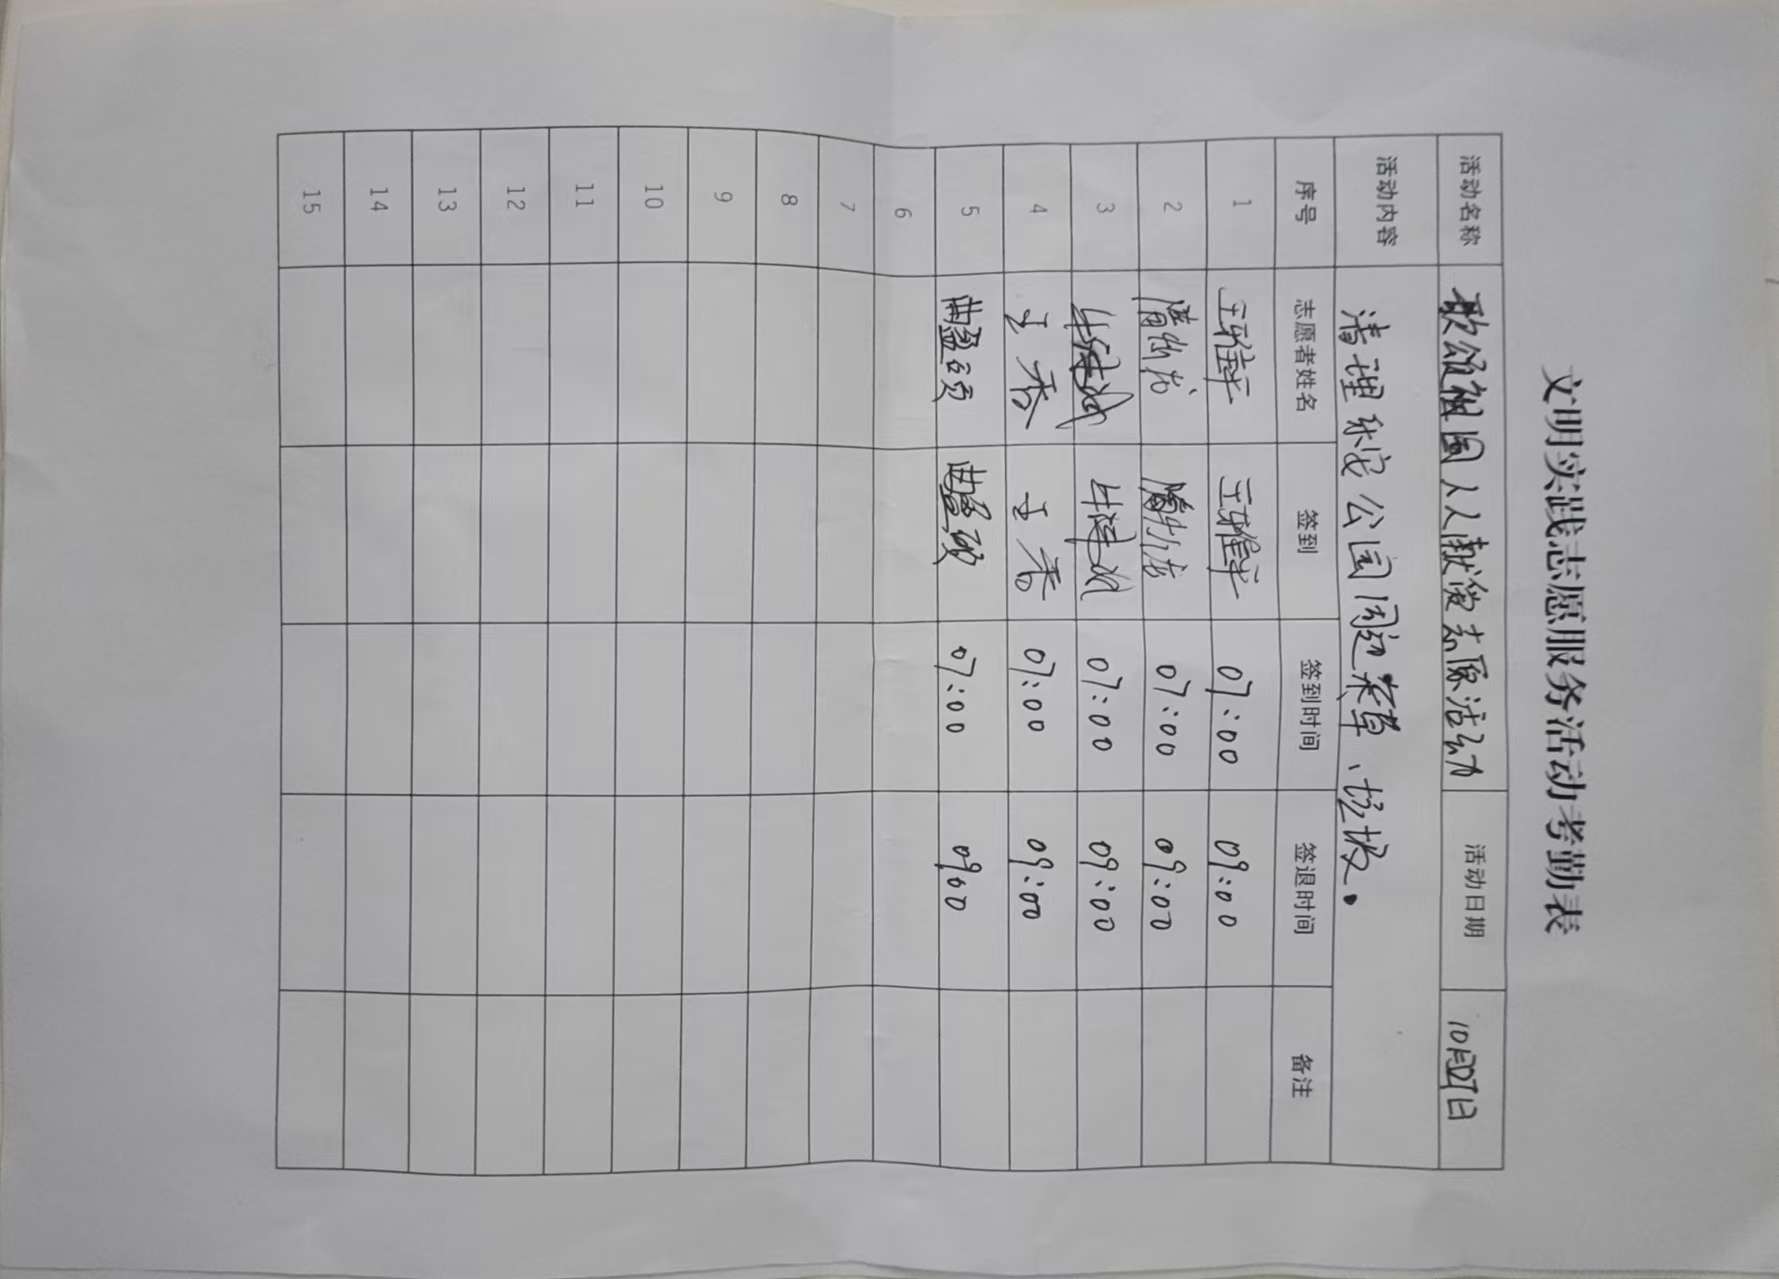 文明实践志愿服务活动考勤表
活动名称 歌颂祖国人人献爱志愿活动 活动日期 10月07日
活动内容 清理秋宏公园周边杂草、垃圾.
序号 志愿者姓名 签到 签到时间 签退时间 备注
1 王雅萍 王雅萍 07:00 09:00
2 07:00 09:00
3 07:00 09:00
4 王香 王香 07:00 09:00
5 曲盈 曲盈 07:00 0900
6
7
8
9
10
11
12
13
14
15